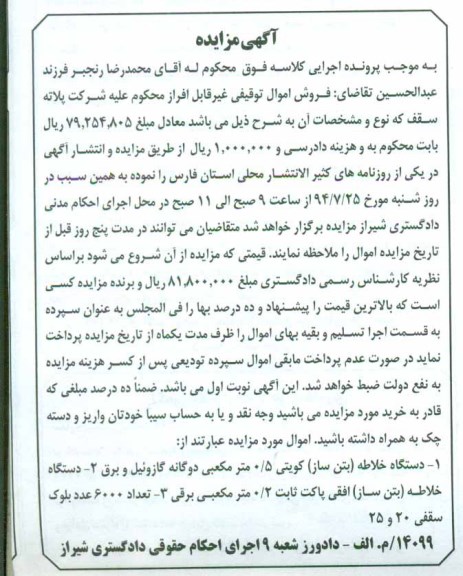 آگهی مزایده
به موجب پرونده اجرایی کلاسه فوق محکوم له آقای محمدرضا رنجبر فرزند
عبدالحسین تقاضای: فروش اموال توقیفی غیرقابل افراز محکوم علیه شرکت پلاته
سقف که نوع و مشخصات آن به شرح ذیل می باشد معادل مبلغ ۷۹,۲۵۴,۸۰۵ ریال
بابت محکوم به و هزینه دادرسی و ۱,۰۰۰,۰۰۰ ریال از طریق مزایده و انتشار آگهی
در یکی از روزنامه های کثیر الانتشار محلی استان فارس را نموده به همین سبب در
روز شنبه مورخ ۹۴/۷/۲۵ از ساعت ۹ صبح الی ۱۱ صبح در محل اجرای احکام مدنی
دادگستری شیراز مزایده برگزار خواهد شد متقاضیان می توانند در مدت پنج روز قبل از
تاریخ مزایده اموال را ملاحظه نمایند. قیمتی که مزایده از آن شروع می شود براساس
نظریه کارشناس رسمی دادگستری مبلغ ۸۱,۸۰۰,۰۰۰ ریال و برنده مزایده کسی
است که بالاترین قیمت را پیشنهاد و ده درصد بها را فی المجلس به عنوان سپرده
به قسمت اجرا تسلیم و بقیه بهای اموال را ظرف مدت یکماه از تاریخ مزایده پرداخت
نماید در صورت عدم پرداخت مابقی اموال سپرده تودیعی پس از کسر هزینه مزایده
به نفع دولت ضبط خواهد شد. این آگهی نوبت اول می باشد. ضمناً ده درصد مبلغی که
قادر به خرید مورد مزایده می باشید وجه نقد و یا به حساب سیبا خودتان واریز و دسته
چک به همراه داشته باشید. اموال مورد مزایده عبارتند از:
۱- دستگاه خلاطه (بتن ساز) کویتی ۰/۵ متر مکعبی دوگانه گازوئیل و برق ۲- دستگاه
خلاطه (بتن ساز) افقی پاکت ثابت ۰/۲ متر مکعبی برقی ۳- تعداد ۶۰۰۰ عدد بلوک
سقفی ۲۰ و ۲۵
۱۴۰۹۹/م. الف - دادورز شعبه ۹ اجرای احکام حقوقی دادگستری شیراز